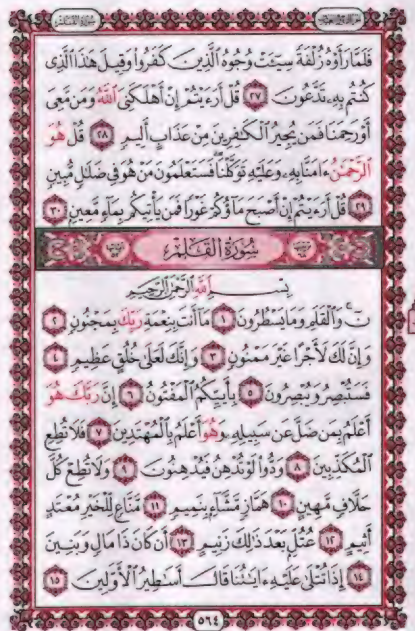 سُورَةُ القَلَمِ
فَلَمَّا رَأَوْهُ زُلْفَةً سِيٓـَٔتْ وُجُوهُ الَّذِينَ كَفَرُوا۟ وَقِيلَ هَٰذَا الَّذِى
كُنتُم بِهِۦ تَدَّعُونَ ٢٧ قُلْ أَرَءَيْتُمْ إِنْ أَهْلَكَنِىَ اللَّهُ وَمَن مَّعِىَ
أَوْ رَحِمَنَا فَمَن يُجِيرُ الْكَٰفِرِينَ مِنْ عَذَابٍ أَلِيمٍ ٢٨ قُلْ هُوَ
الرَّحْمَٰنُ ءَامَنَّا بِهِۦ وَعَلَيْهِ تَوَكَّلْنَا فَسَتَعْلَمُونَ مَنْ هُوَ فِى ضَلَٰلٍ مُّبِينٍ
٢٩ قُلْ أَرَءَيْتُمْ إِنْ أَصْبَحَ مَآؤُكُمْ غَوْرًا فَمَن يَأْتِيكُم بِمَآءٍ مَّعِينٍ ٣٠
سُورَةُ القَلَمِ
بِسْمِ اللَّهِ الرَّحْمَٰنِ الرَّحِيمِ
نٓ وَالْقَلَمِ وَمَا يَسْطُرُونَ ١ مَآ أَنتَ بِنِعْمَةِ رَبِّكَ بِمَجْنُونٍ ٢
وَإِنَّ لَكَ لَأَجْرًا غَيْرَ مَمْنُونٍ ٣ وَإِنَّكَ لَعَلَىٰ خُلُقٍ عَظِيمٍ ٤
فَسَتُبْصِرُ وَيُبْصِرُونَ ٥ بِأَييِّكُمُ الْمَفْتُونُ ٦ إِنَّ رَبَّكَ هُوَ
أَعْلَمُ بِمَن ضَلَّ عَن سَبِيلِهِۦ وَهُوَ أَعْلَمُ بِالْمُهْتَدِينَ ٧ فَلَا تُطِعِ
الْمُكَذِّبِينَ ٨ وَدُّوا۟ لَوْ تُدْهِنُ فَيُدْهِنُونَ ٩ وَلَا تُطِعْ كُلَّ
حَلَّافٍ مَّهِينٍ ١٠ هَمَّازٍ مَّشَّآءٍۭ بِنَمِيمٍ ١١ مَّنَّاعٍ لِّلْخَيْرِ مُعْتَدٍ
أَثِيمٍ ١٢ عُتُلٍّۭ بَعْدَ ذَٰلِكَ زَنِيمٍ ١٣ أَن كَانَ ذَا مَالٍ وَبَنِينَ
١٤ إِذَا تُتْلَىٰ عَلَيْهِ ءَايَٰتُنَا قَالَ أَسَٰطِيرُ الْأَوَّلِينَ ١٥
٥٦٤